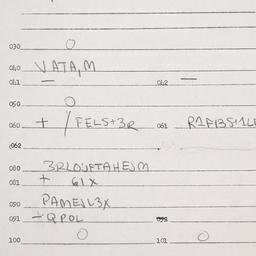 030 O
040 VATA,M
041 — 042 —
050 O
060 + / FELS+3R 061 R1F13S+1L
062
080 3RLOUFTAHEJM
081 + 61X
090 PAMEJL3X
091 ÷QPOL
100 O 101 O